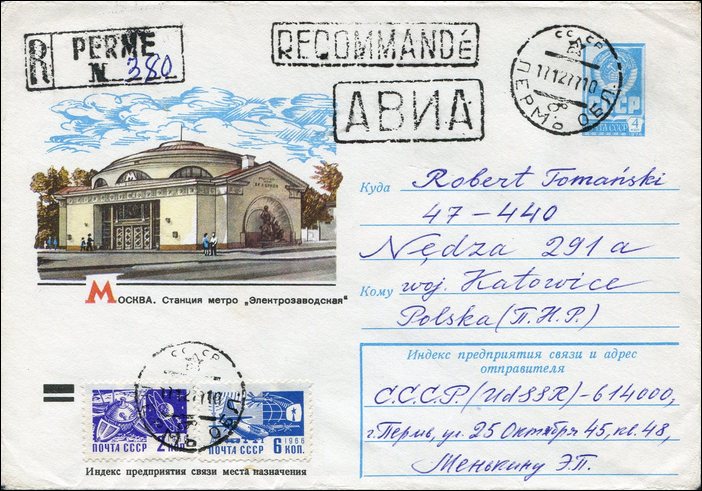 R PERME
N. 380
RECOMMANDÉ
АВИА
СССР
171277 10
ПЕРМЬ ОБЛ.
СССР
ПОЧТА СССР 4
Куда Robert Tomański
47-440
Nędza 291 a
Кому woj. Katowice
Polska (П.Н.Р.)
МОСКВА. Станция метро „Электрозаводская"
Индекс предприятия связи и адрес
отправителя
С.С.С.Р. (UdSSR) - 614000,
г. Пермь, ул. 25 Октября 45, кв. 48,
Менькину Э.П.
СССР
171277 10
ОБЛ.
ПОЧТА СССР 2 коп.
1966
ПОЧТА СССР 6 КОП.
Индекс предприятия связи места назначения